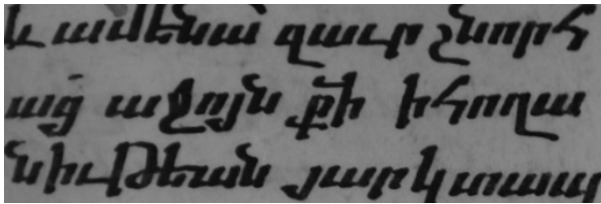 և ամենա զաւր շնորհ
աց աջոյն քի ի հողա
նիւթեան յարկ